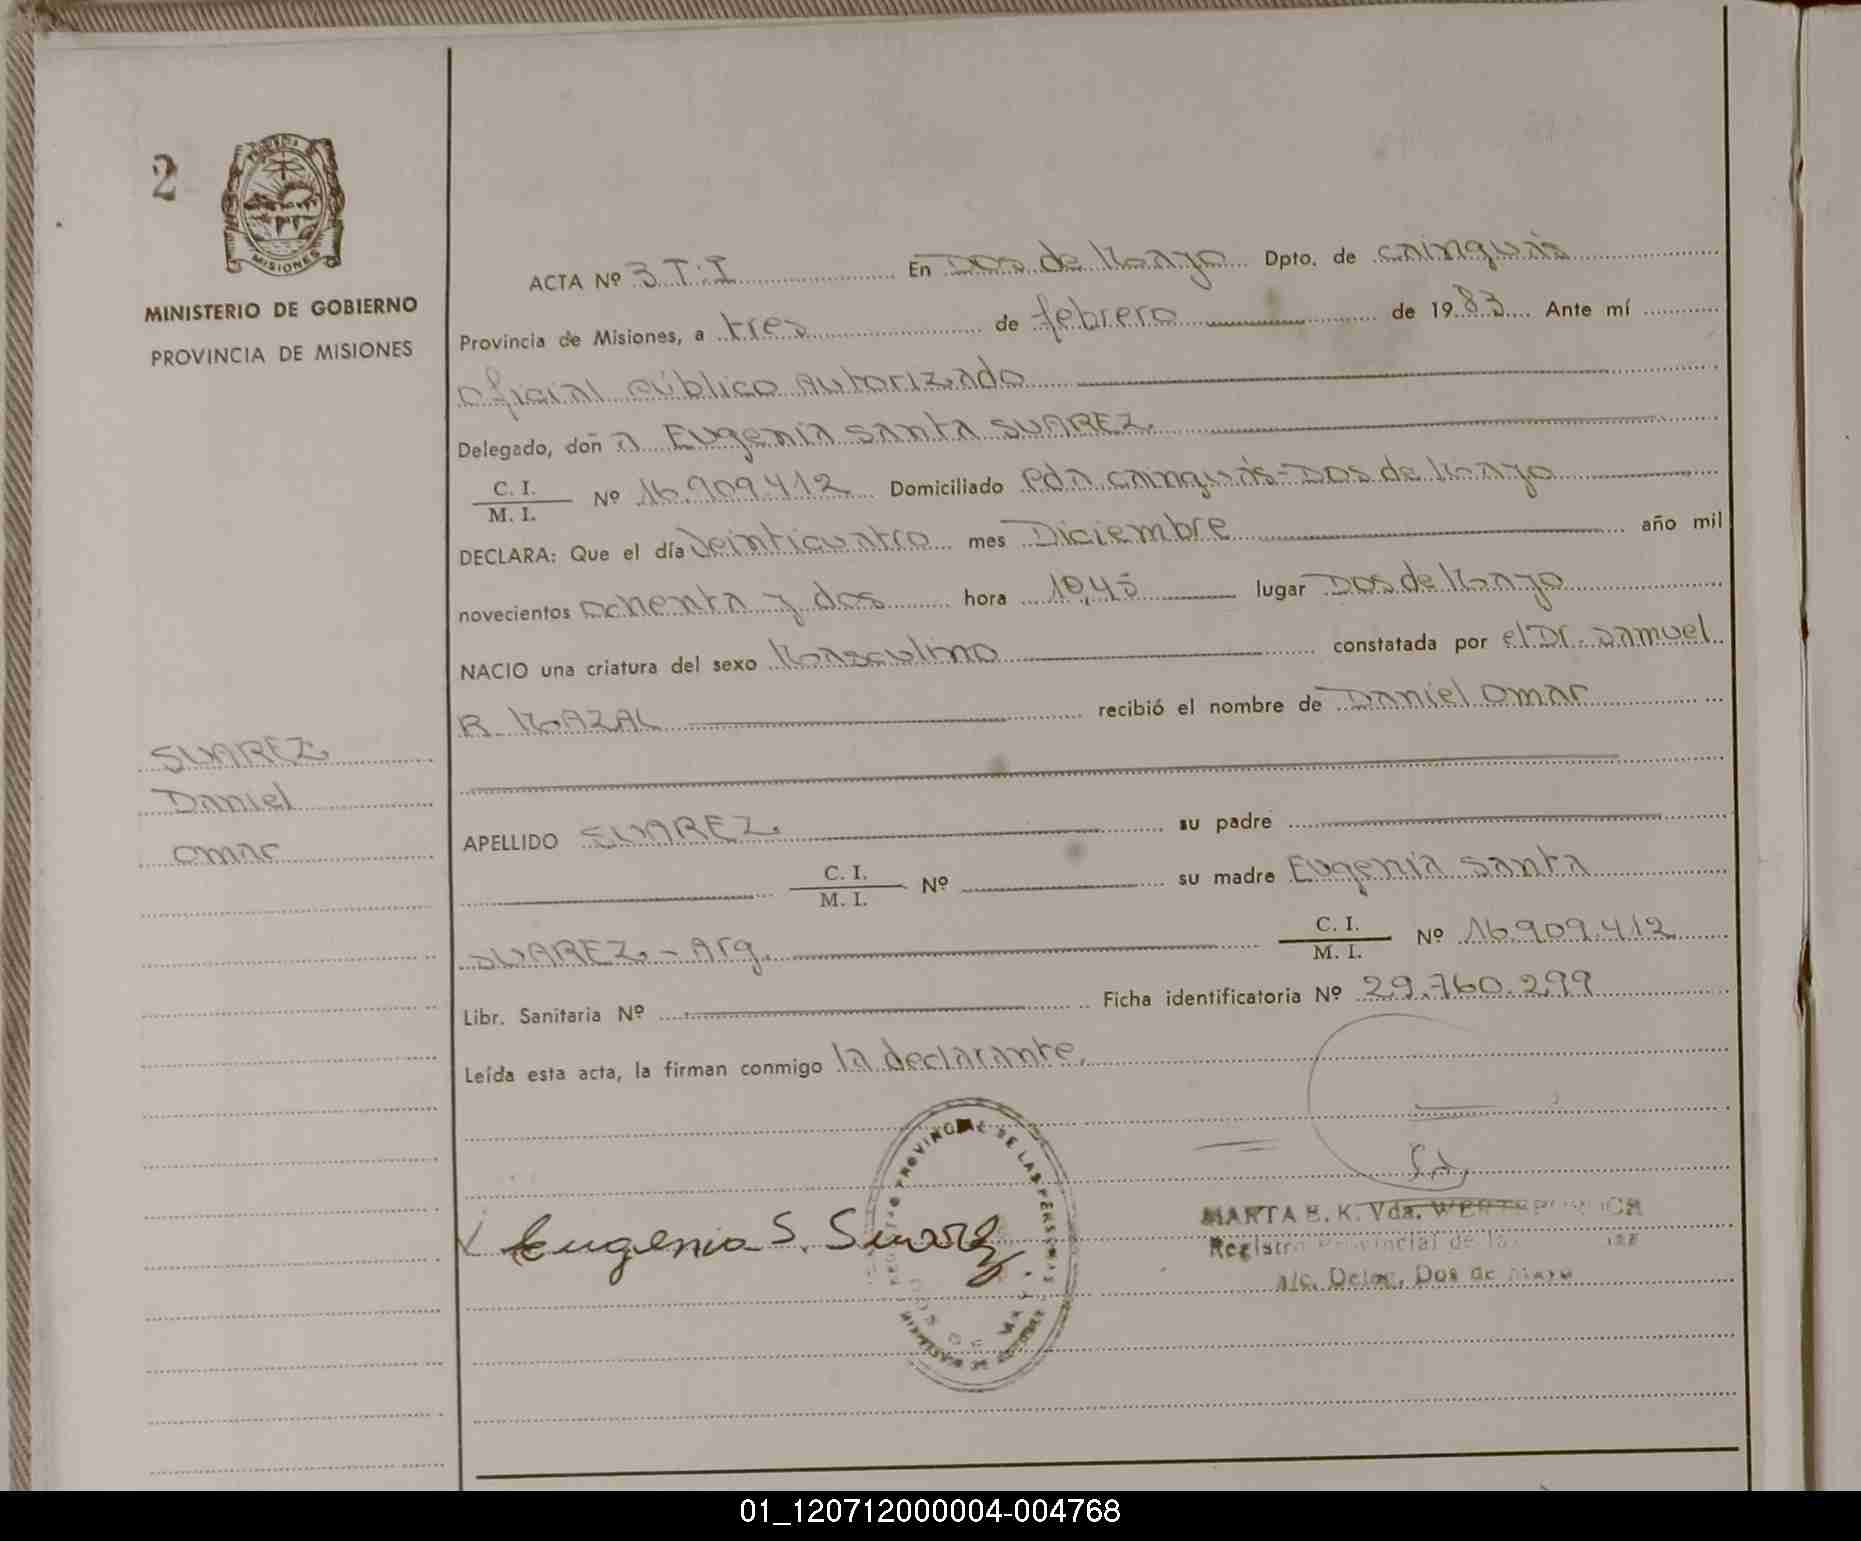 2
MISIONES
MINISTERIO DE GOBIERNO
PROVINCIA DE MISIONES
SUAREZ
Daniel
Omar
ACTA Nº 3 T.I En Dos de Mayo Dpto. de Cainguás
Provincia de Misiones, a tres de febrero de 1983 Ante mí
Oficial Público Autorizado
Delegado, doña Eugenia Santa SUAREZ.
C. I.
M. I. Nº 16.909.412 Domiciliado Pda Cainguás-Dos de Mayo
DECLARA: Que el día Veinticuatro mes Diciembre año mil
novecientos ochenta y dos hora 10,45 lugar Dos de Mayo
NACIO una criatura del sexo Masculino constatada por el Dr. Samuel
R. MAZAL recibió el nombre de Daniel Omar
APELLIDO SUAREZ. su padre
C. I.
M. I. Nº su madre Eugenia Santa
SUAREZ.-Arg. C. I.
M. I. Nº 16.909.412
Libr. Sanitaria Nº Ficha identificatoria Nº 29.760.299
Leída esta acta, la firman conmigo la declarante.
Eugenia S. Suarez
REGISTRO PROVINCIAL DE LAS PERSONAS
DOS DE MAYO
MARTA E. K. Vda.
Registro Provincial de las
a/c. Deleg. Dos de Mayo
01_120712000004-004768